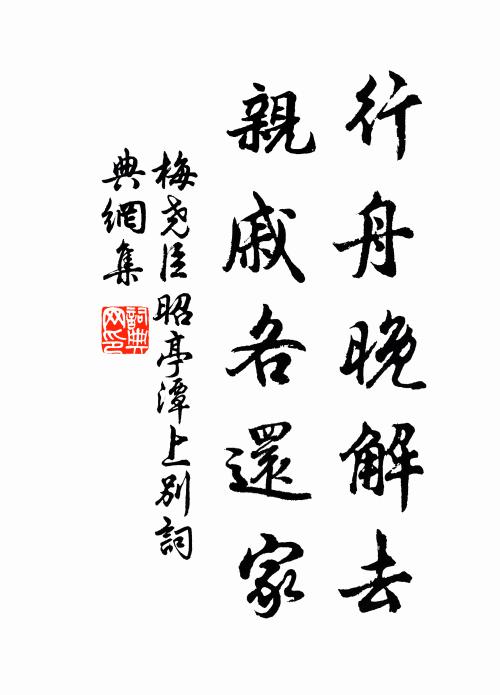 行舟晚解去
親戚各還家
梅堯臣昭亭潭上別詞
典網集
詞典
网印